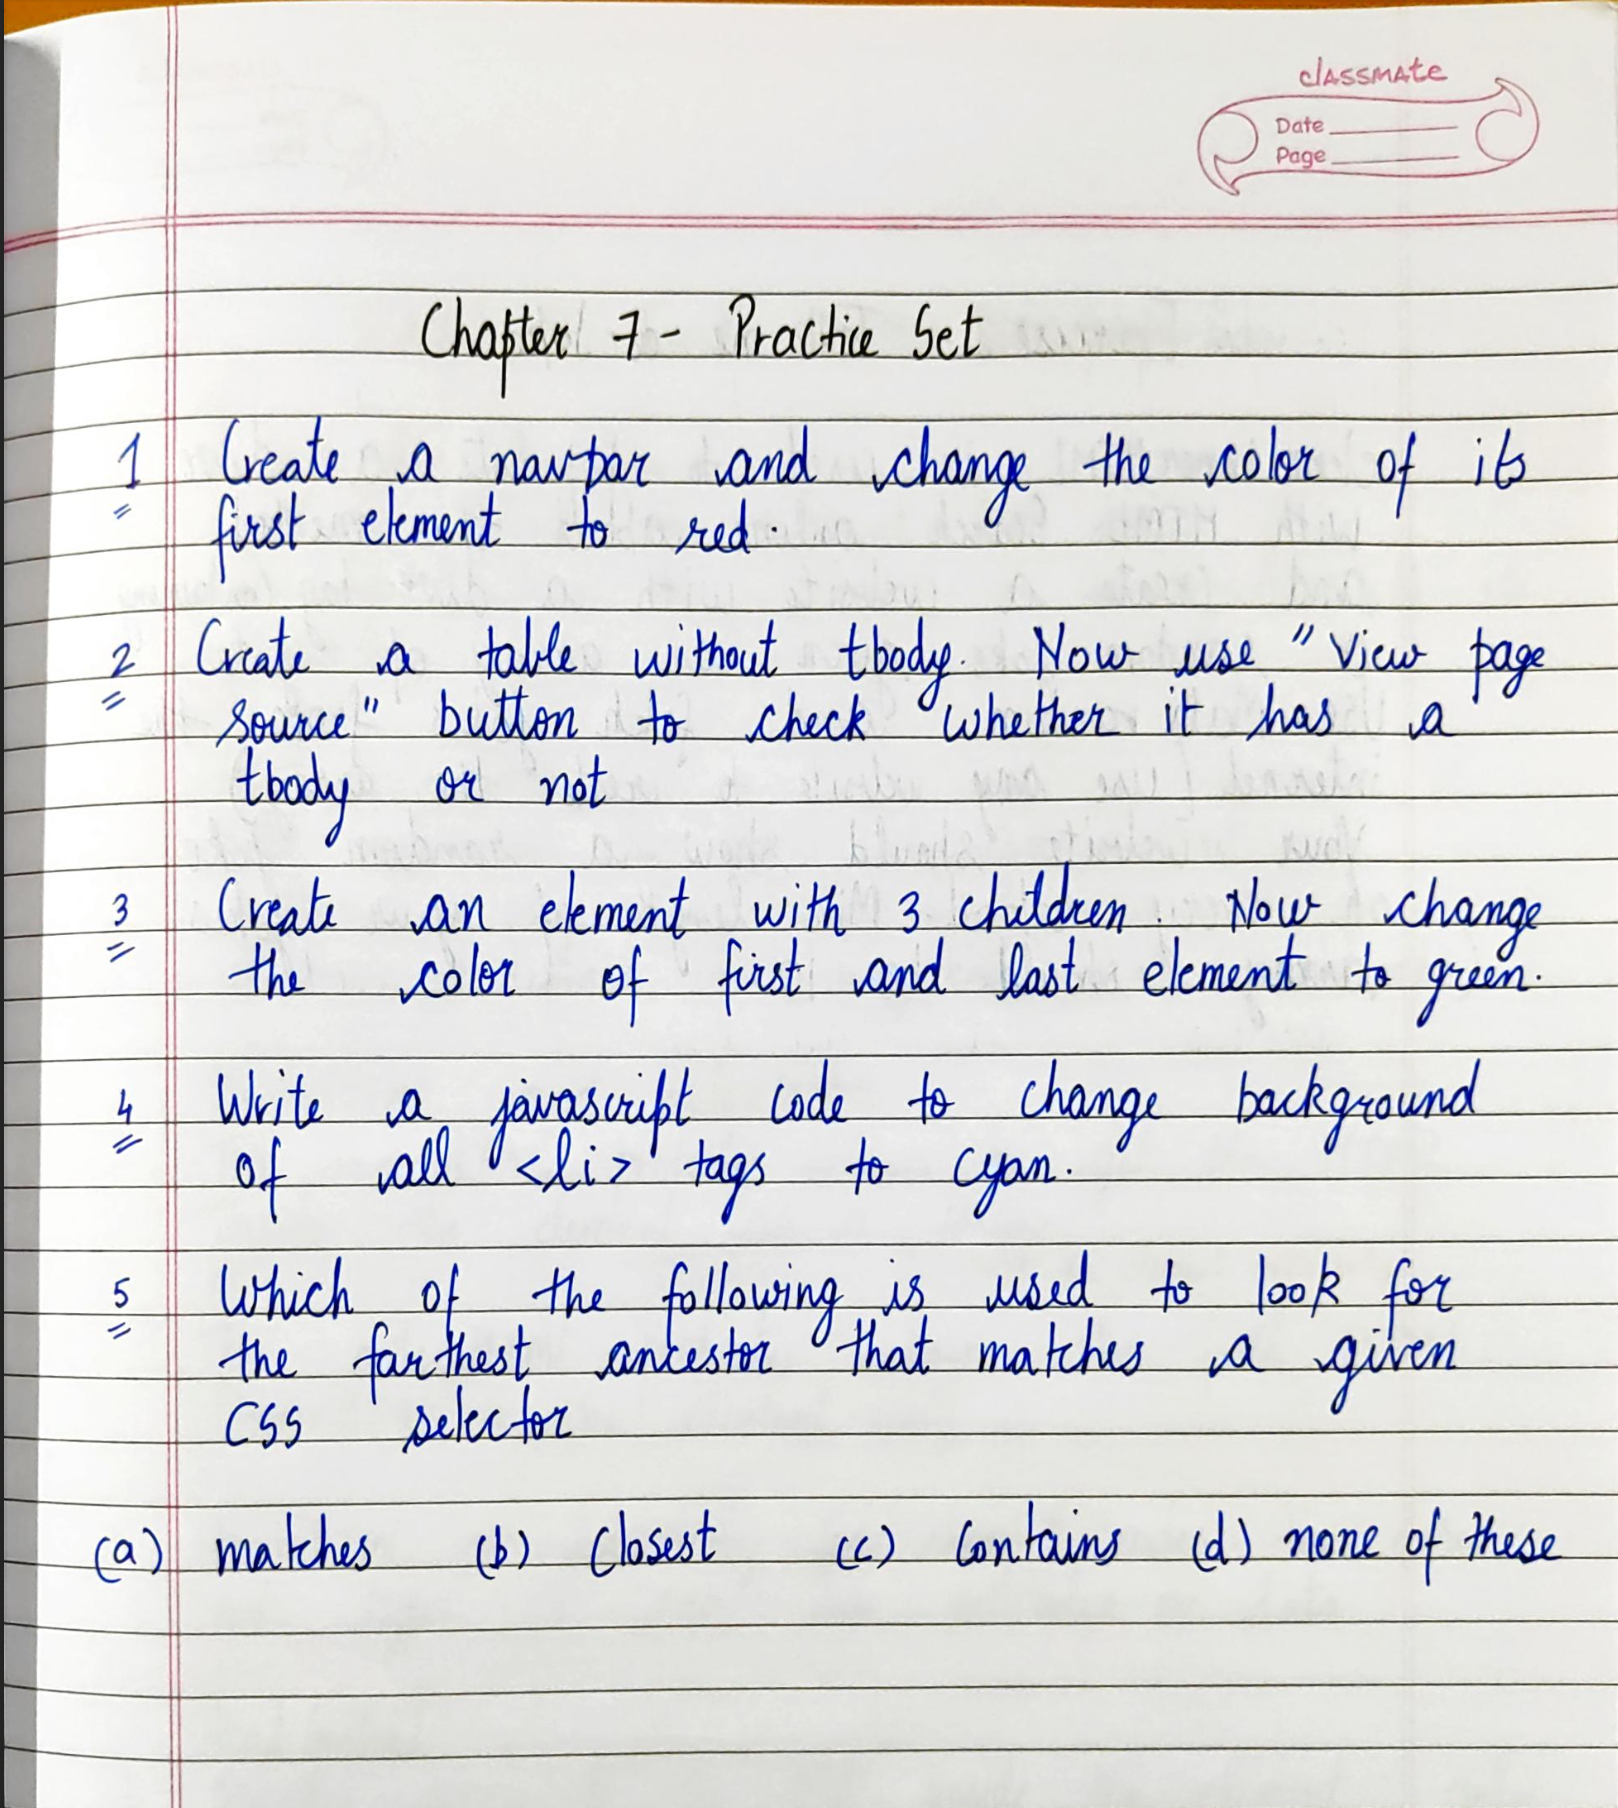 classmate
Date
Page
Chapter 7 - Practice Set
1 Create a navbar and change the color of its
first element to red.
2 Create a table without tbody. Now use "View page
source" button to check whether it has a
tbody or not
3 Create an element with 3 children. Now change
the color of first and last element to green.
4 Write a javascript code to change background
of all <li> tags to cyan.
5 Which of the following is used to look for
the farthest ancestor that matches a given
CSS selector
(a) matches (b) Closest (c) Contains (d) none of these